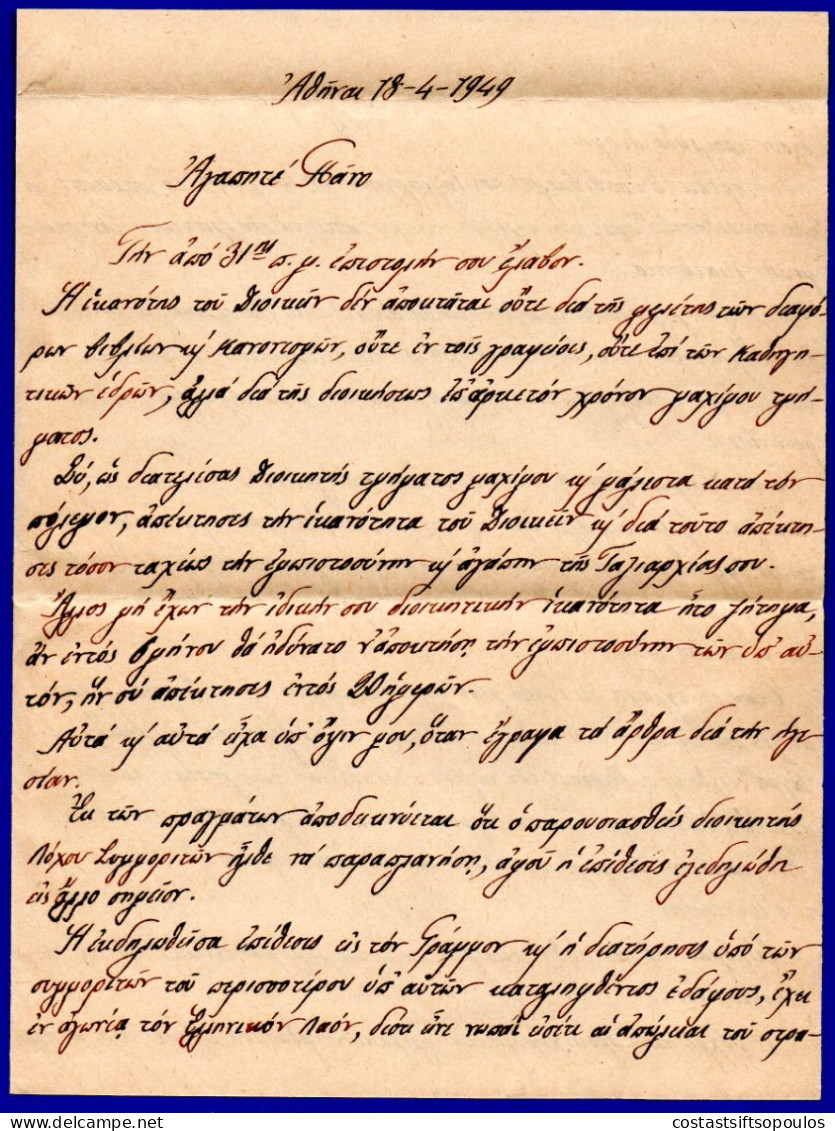 Ἀθῆναι 18-4-1949
Ἀγαπητέ Πάνο
Τήν ἀπό 31ης π. μ. ἐπιστολήν σου ἔλαβον.
Ἡ ἱκανότης τοῦ Διοικεῖν δέν ἀποκτᾶται οὔτε διά τῆς μελέτης τῶν διαφό-
ρων βιβλίων κ' Κανονισμῶν, οὔτε ἐν τοῖς γραφείοις, οὔτε ἐπί τῶν καθηγη-
τικῶν ἑδρῶν, ἀλλά διά τῆς διοικήσεως ἐπ' ἀρκετόν χρόνον μαχίμου τμή-
ματος.
Σύ, ὡς διατελέσας Διοικητής τμήματος μαχίμου κ' μάλιστα κατά τόν
πόλεμον, ἀπέκτησες τήν ἱκανότητα τοῦ Διοικεῖν κ' διά τοῦτο ἀπέκτη-
σες τόσον ταχέως τήν ἐμπιστοσύνην κ' ἀγάπην τῆς Ταξιαρχίας σου.
Ἄλλος μή ἔχων τήν ἰδικήν σου διοικητικήν ἱκανότητα ἦτο ζήτημα,
ἄν ἐντός 6μήνου θά ἠδύνατο ν' ἀποκτήσῃ τήν ἐμπιστοσύνην τῶν ὑπ' αὐ-
τόν, ἥν σύ ἀπέκτησες ἐντός 20 ἡμερῶν.
Αὐτά κ' αὐτά εἶχα ὑπ' ὄψιν μου, ὅταν ἔγραφα τά ἄρθρα διά τήν ἡγε-
σίαν.
Ἐκ τῶν πραγμάτων ἀποδεικνύεται ὅτι ὁ παρουσιασθείς διοικητής
Λόχου Συμμοριτῶν ἦλθε νά παραπλανήσῃ, ἀφοῦ ἡ ἐπίθεσις ἐξεδηλώθη
εἰς ἄλλο σημεῖον.
Ἡ ἐκδηλωθεῖσα ἐπίθεσις εἰς τόν Γράμμον κ' ἡ διατήρησις ὑπό τῶν
συμμοριτῶν τοῦ περισσοτέρου ὑπ' αὐτῶν καταληφθέντος ἐδάφους, ἔχει
ἐν ἀγωνίᾳ τόν Ἑλληνικόν Λαόν, διότι εἶνε νωπαί εἰσέτι αἱ ἀπώλειαι τοῦ στρα-
costastsiftsopoulos